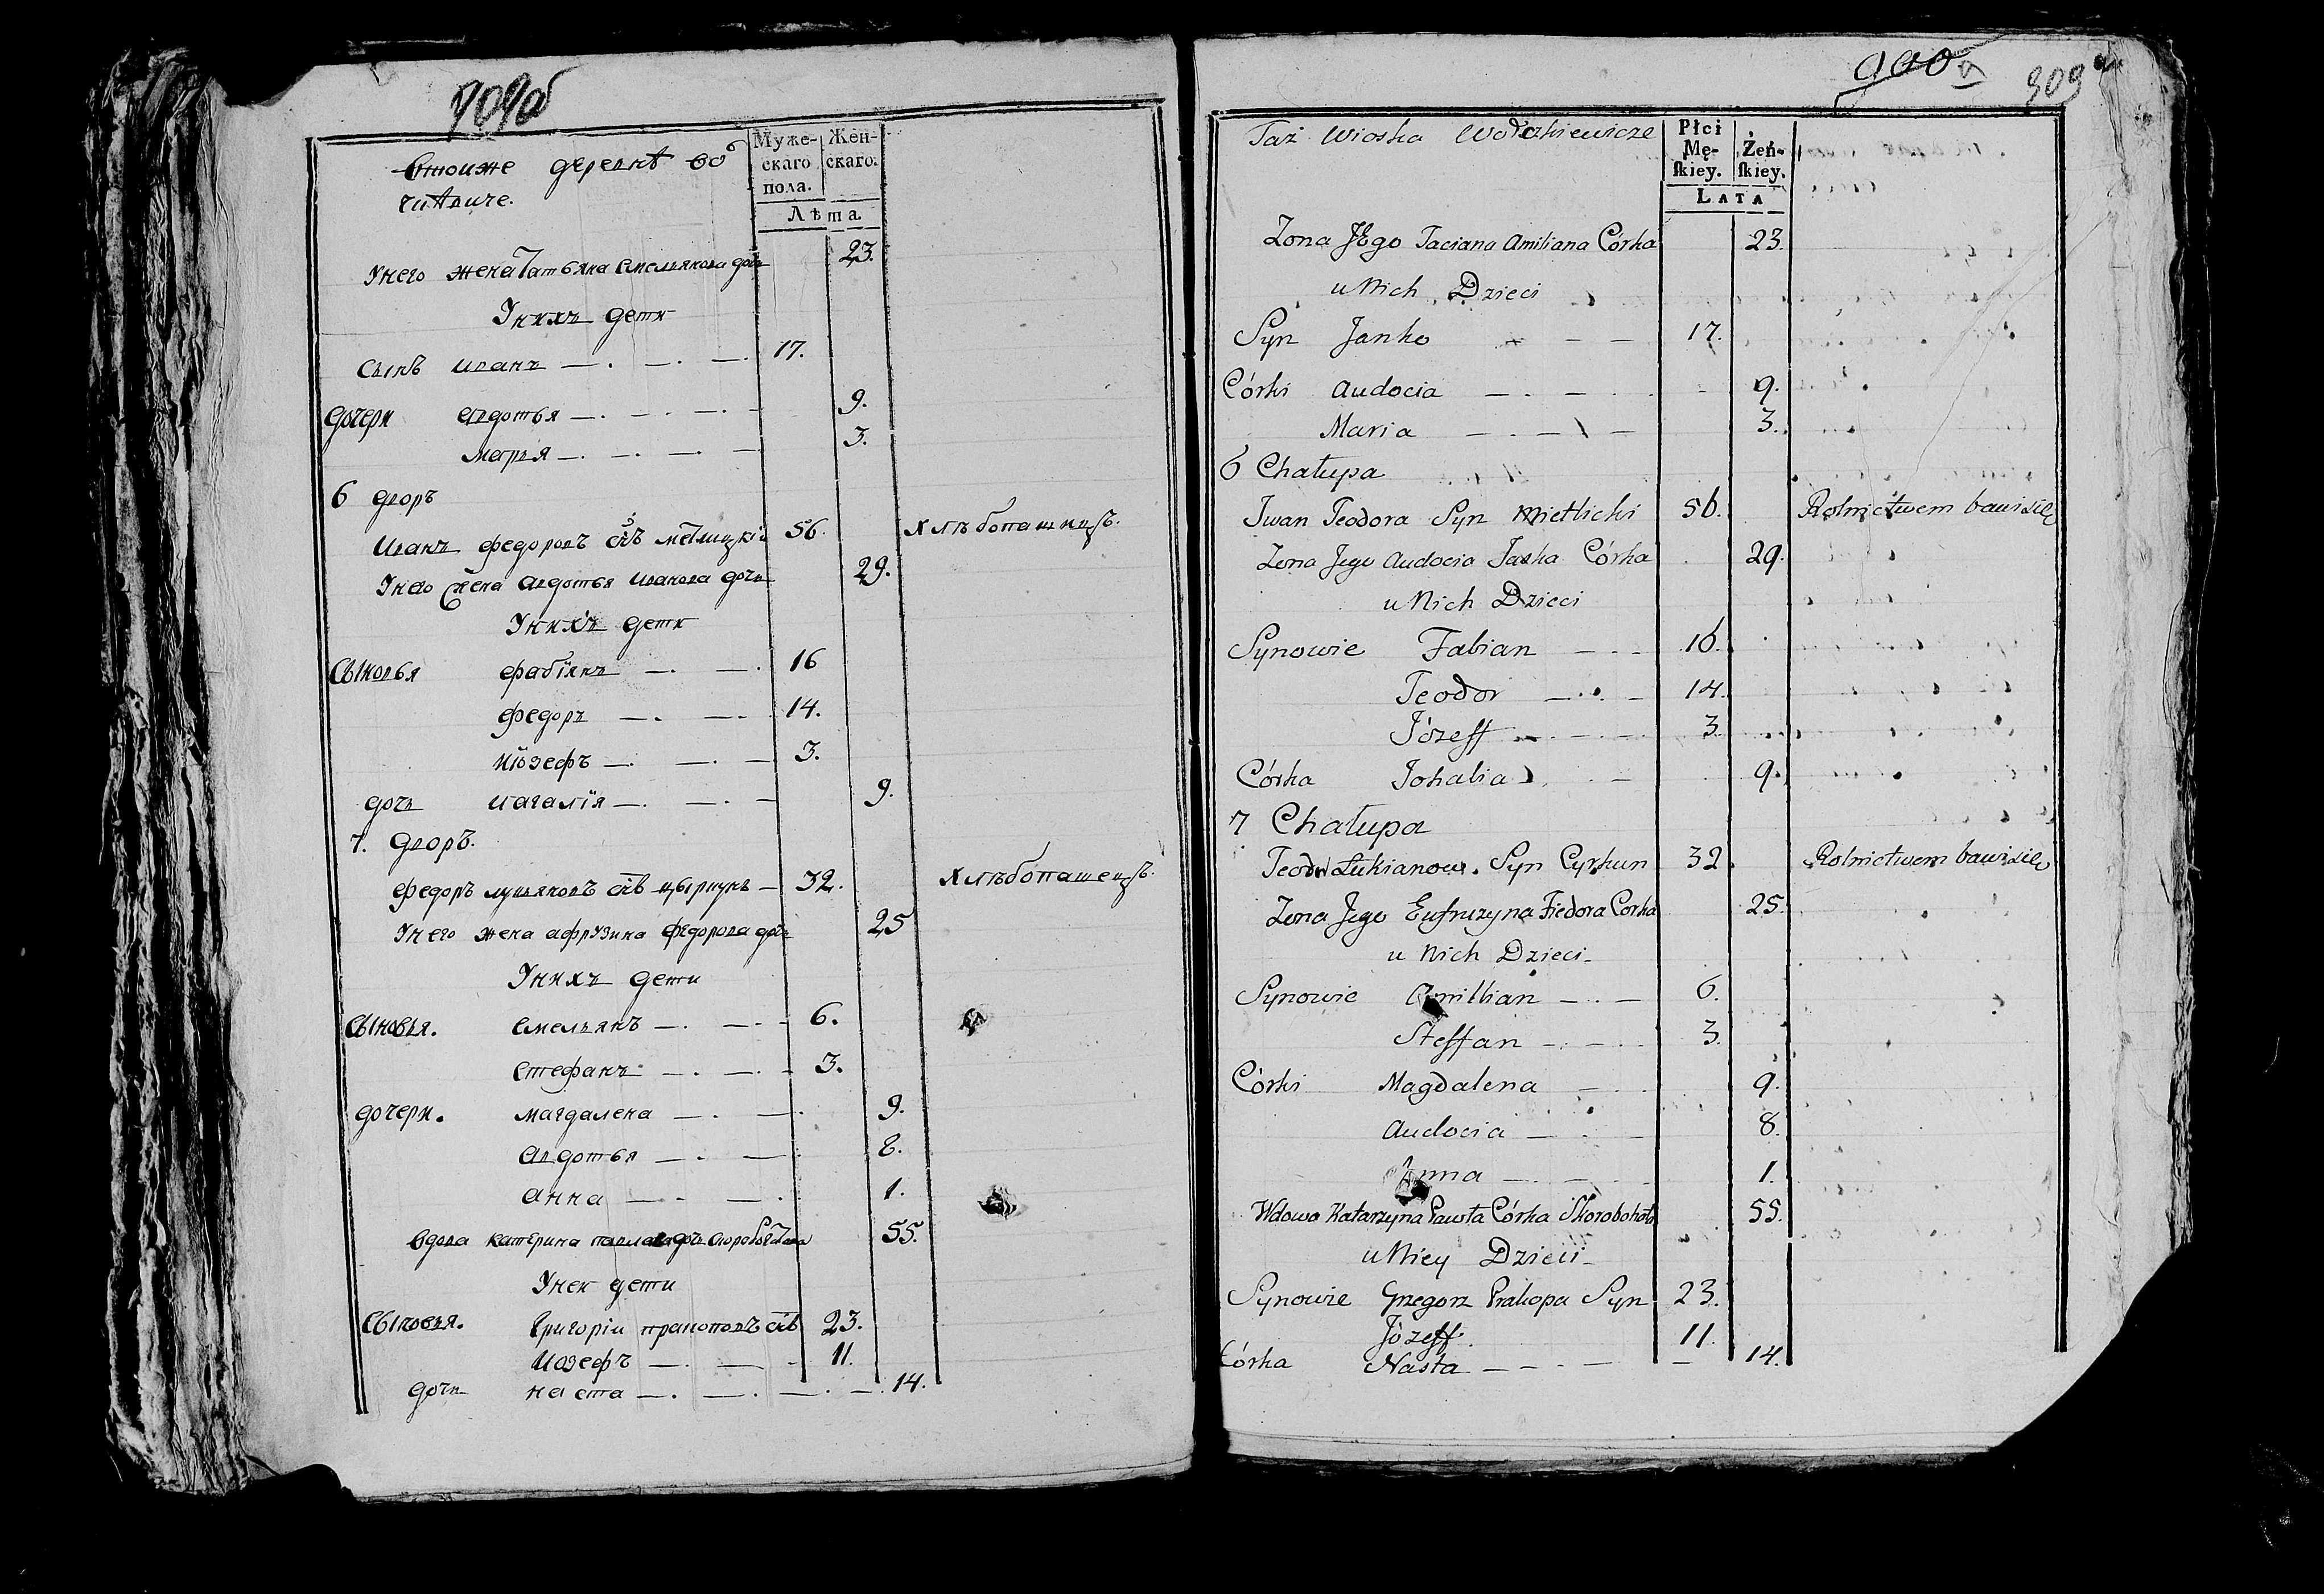 Муже-
скаго
пола.
Жен-
скаго.
Лѣта.
втоиже деревнѣ во
Унего жена Татьяна Емельянова дочь 23.
Унихъ дети
сынъ Иванъ 17.
дочери Авдотья 9.
марья 3.
6 дворъ
Иванъ федоровъ снъ метлицкій 56. хлѣбопашецъ.
Унего жена Авдотья Иванова дочь 29.
Унихъ дети
Сыновья фабіянъ 16
федоръ 14.
Иозефъ 3.
дочь 9.
7. дворъ.
федоръ лукьяновъ снъ цыркунъ 32. хлѣбопашецъ.
Унего жена афрузина федорова дочь 25
Унихъ дети
Сыновья. Емельянъ 6.
Стефанъ 3.
дочери. магдалена 9.
Авдотья 8.
Анна 1.
вдова катерина павлова дочь 55.
Унеи дети
Сыновья. Григоріи пракоповъ снъ 23.
Иозефъ 11.
дочь наста 14.
900 909
Taż Wioska Wołczkiewicze
Płci
Mę-
ſkiey.
Żeń-
ſkiey.
LATA
Zona Jego Taciana Amiliana Córka 23.
u Nich Dzieci
Syn Janko 17.
Córki Audocia 9.
Maria 3.
6 Chałupa
Iwan Teodora Syn Mietlicki 56. Rolnictwem bawi się
Zona Jego Audocia Jaska Córka 29.
u Nich Dzieci
Synowie Fabian 16.
Teodor 14.
Józeff 3
Córka Johalia 9.
7 Chałupa
Teodor Łukianow. Syn Cyrkun 32. Rolnictwem bawi się
Zona Jego Eufruzyna Fiedora Corka 25.
u Nich Dzieci
Synowie Amillian 6.
Steffan 3.
Córki Magdalena 9.
Audocia 8.
Anna 1.
Wdowa Katarzyna Pawła Córka 55.
u Niey Dzieci
Synowie Grzegorz Prakopa Syn 23.
Józeff 11.
Córka Nasta 14.